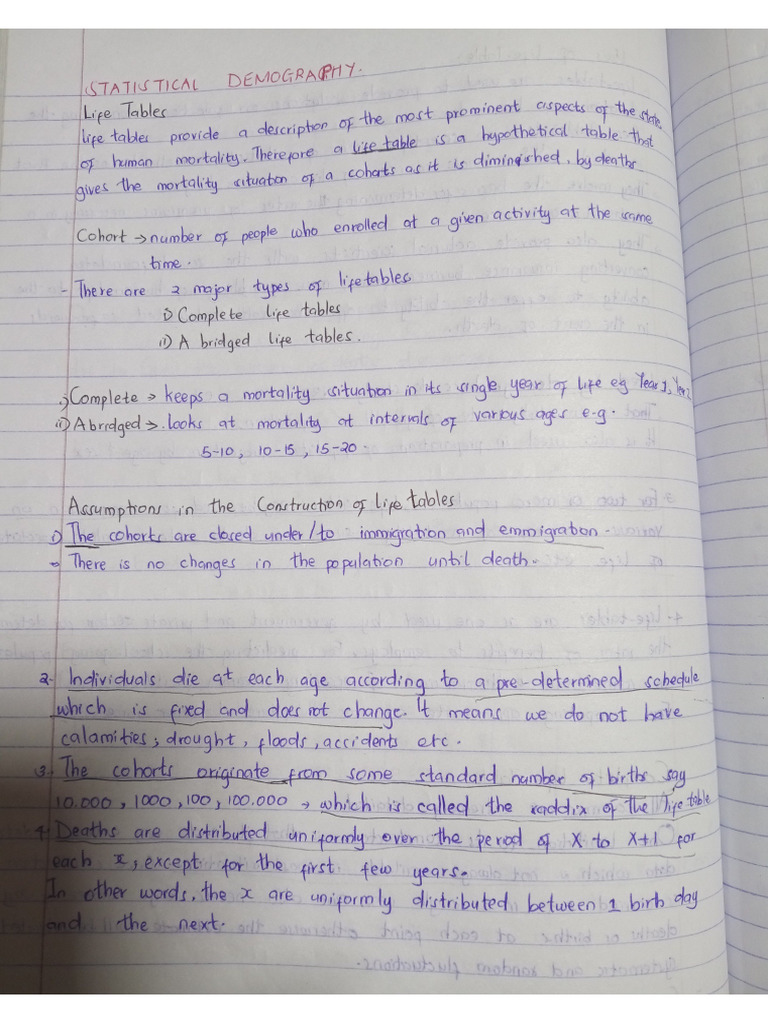 STATISTICAL DEMOGRAPHY.
Life Tables
life tables provide a description of the most prominent aspects of the state
of human mortality. Therefore a life table is a hypothetical table that
gives the mortality situation of a cohorts as it is diminished, by deaths
Cohort → number of people who enrolled at a given activity at the same
time.
- There are 2 major types of life tables
i) Complete life tables
ii) A bridged life tables.
i) Complete → keeps a mortality situation in its single year of life eg Year 1, Year 2
ii) Abridged → looks at mortality at intervals of various ages e.g.
5-10, 10-15, 15-20
Assumptions in the Construction of life tables
1) The cohorts are closed under/to immigration and emmigration.
- There is no changes in the population until death.
2. Individuals die at each age according to a pre-determined schedule
which is fixed and does not change. It means we do not have
calamities; drought, floods, accidents etc.
3. The cohorts originate from some standard number of births say
10.000, 1000, 100, 100.000 → which is called the raddix of the life table
4. Deaths are distributed uniformly over the period of x to x+1 for
each x, except for the first few years.
In other words, the x are uniformly distributed between 1 birth day
and the next.